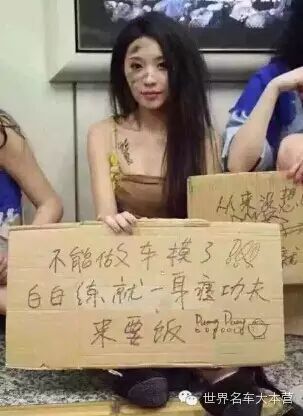 从来没想
不能做车模了
白白练就一身渡功夫
来要饭 Duang Duang
世界名车大本营